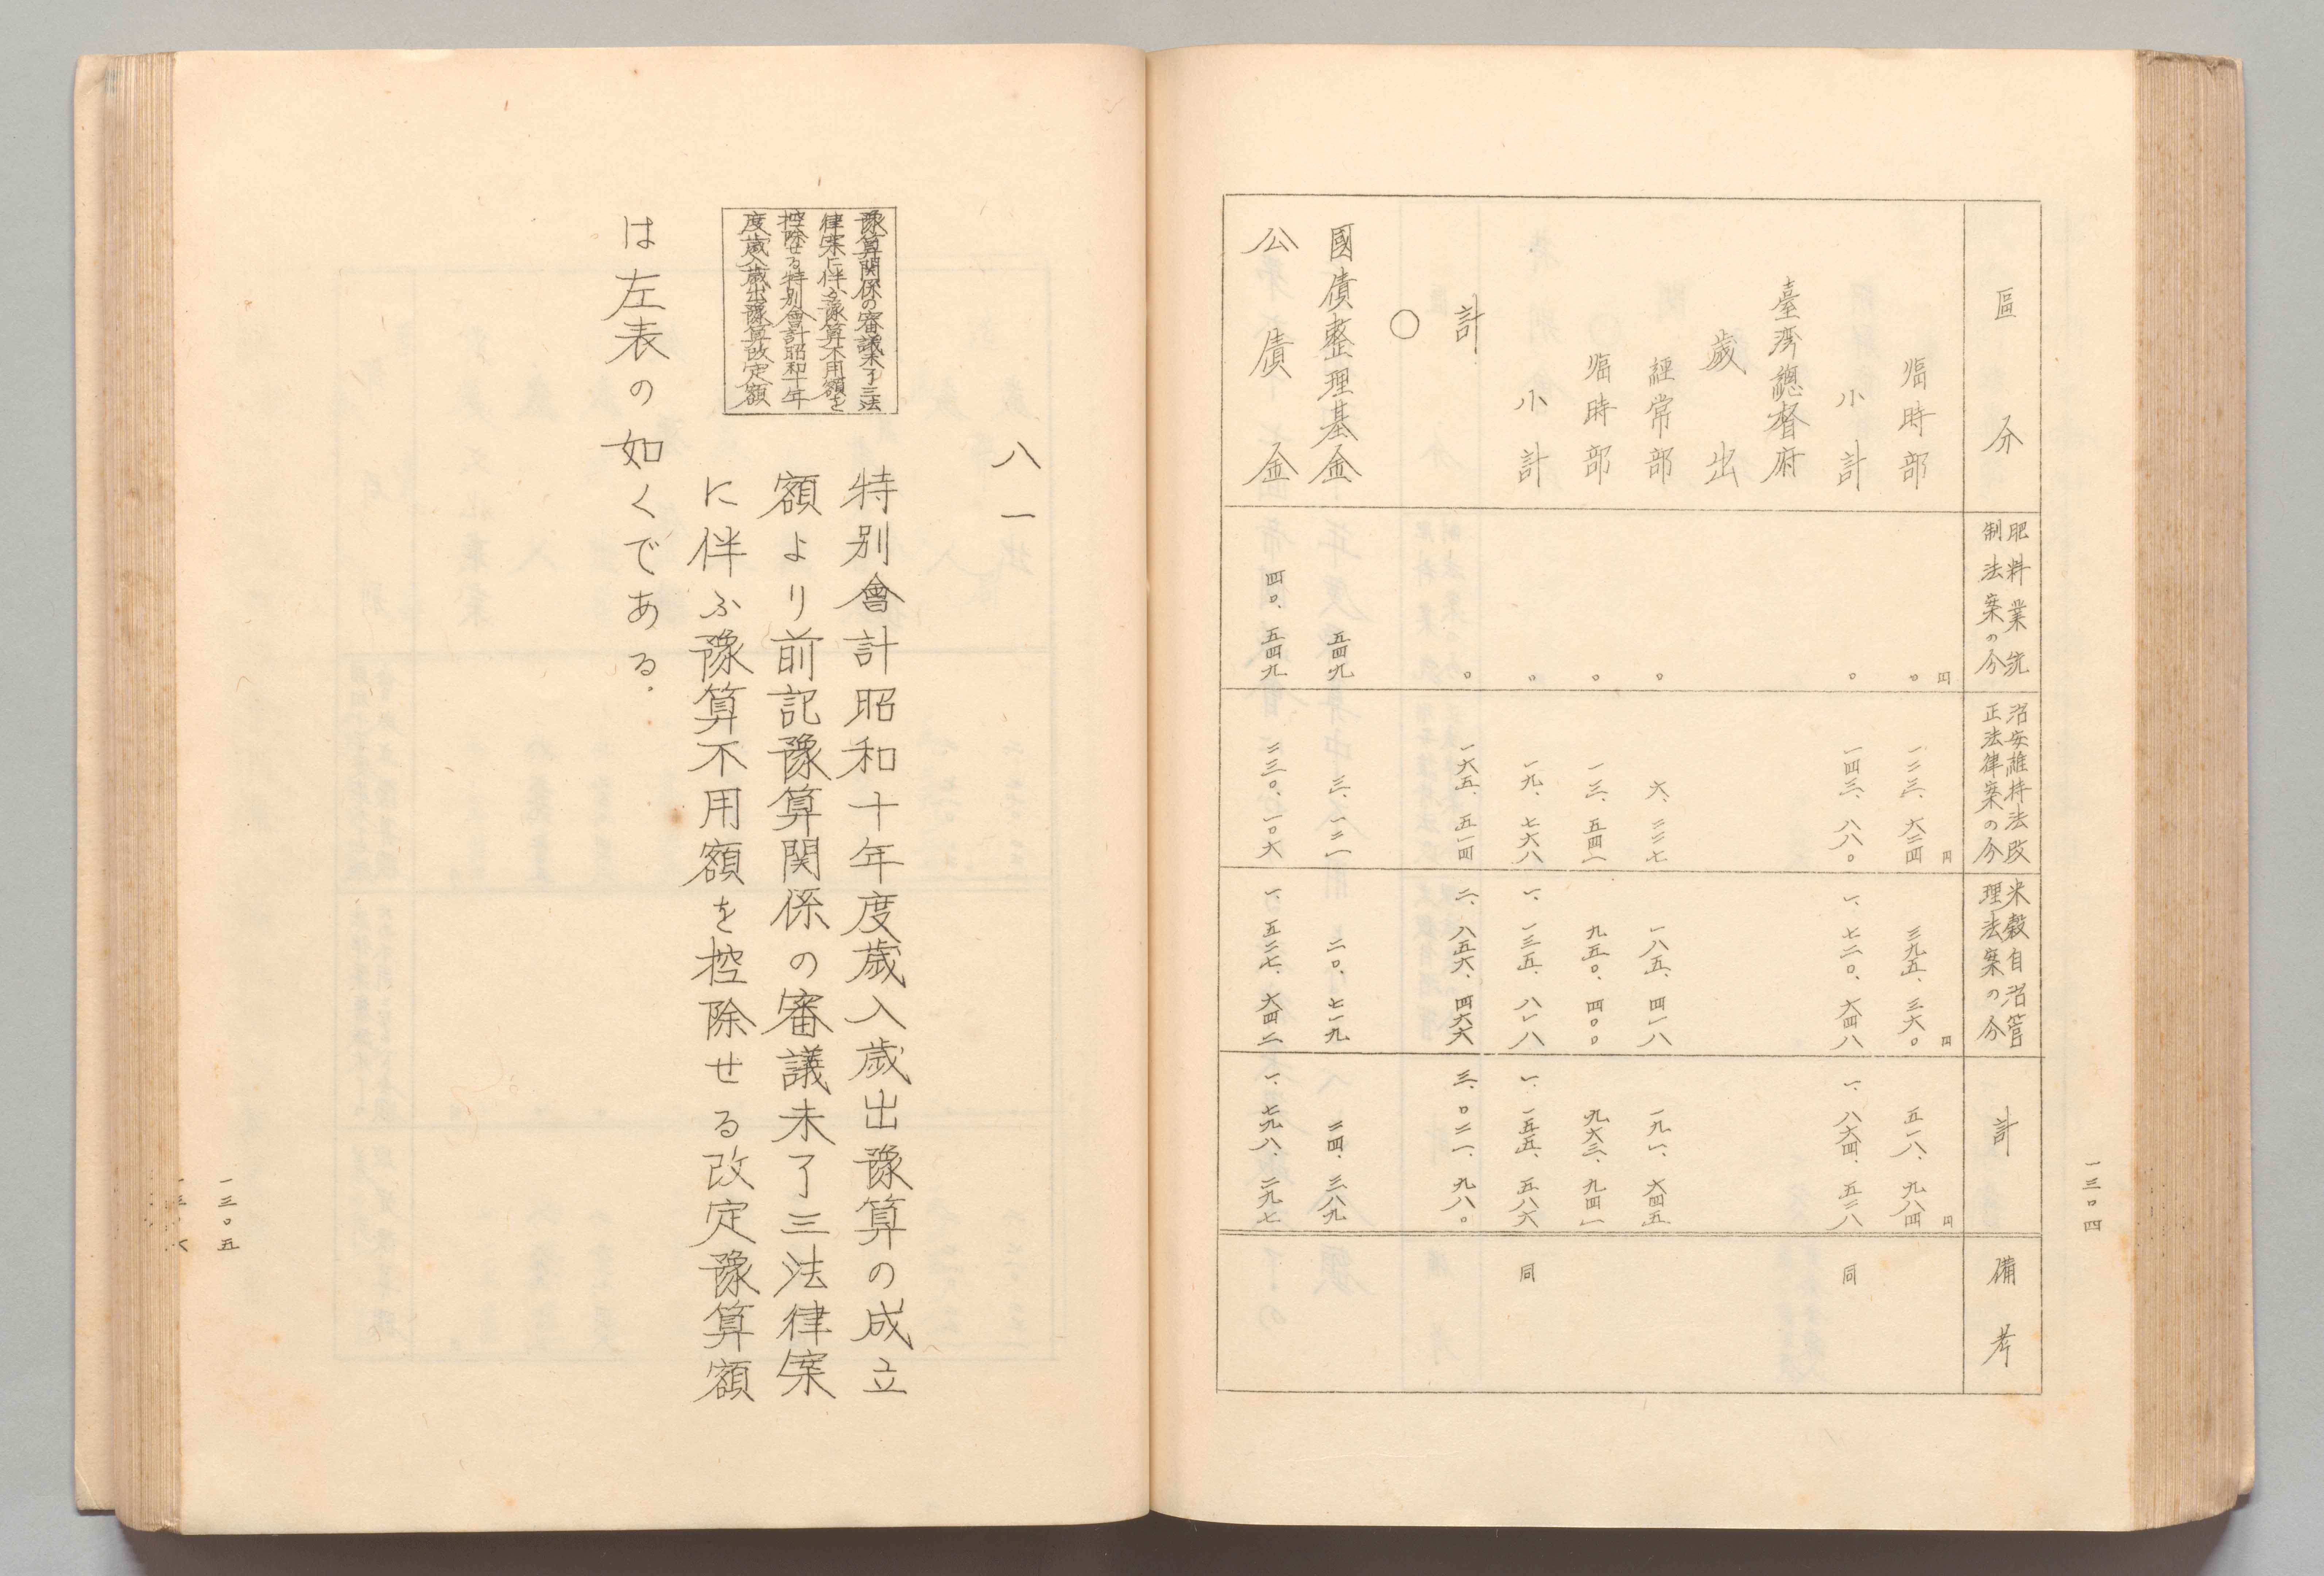 一三〇四
區分 肥料業統制法案の分 治安維持法改正法律案の分 米穀自治管理法案の分 計 備考
円 円 円 円
臨時部 〇 一二三、六二四 三九五、三六〇 五一八、九八四
小計 〇 一四三、八八〇 一、七二〇、六四八 一、八六四、五二八 同
臺灣總督府
歲出
經常部 〇 六、二二七 一八五、四一八 一九一、六四五
臨時部 〇 一三、五四一 九五〇、四〇〇 九六三、九四一
小計 〇 一九、七六八 一、一三五、八一八 一、一五五、五八六 同
計 〇 一六五、五一四 二、八五六、四六六 三、〇二一、九八〇
○
國債整理基金 五四九 三、一二一 二〇、七一九 二四、三八九
公債金 四〇、五四九 二三〇、一〇六 一、五二七、六四二 一、七九八、二九七
八一
豫算關係の審議未了三法
律案に伴ふ豫算不用額を
控除せる特別會計昭和十年
度歲入歲出豫算改定額
特別會計昭和十年度歲入歲出豫算の成立
額より前記豫算関係の審議未了三法律案
に伴ふ豫算不用額を控除せる改定豫算額
は左表の如くである.
一三〇五